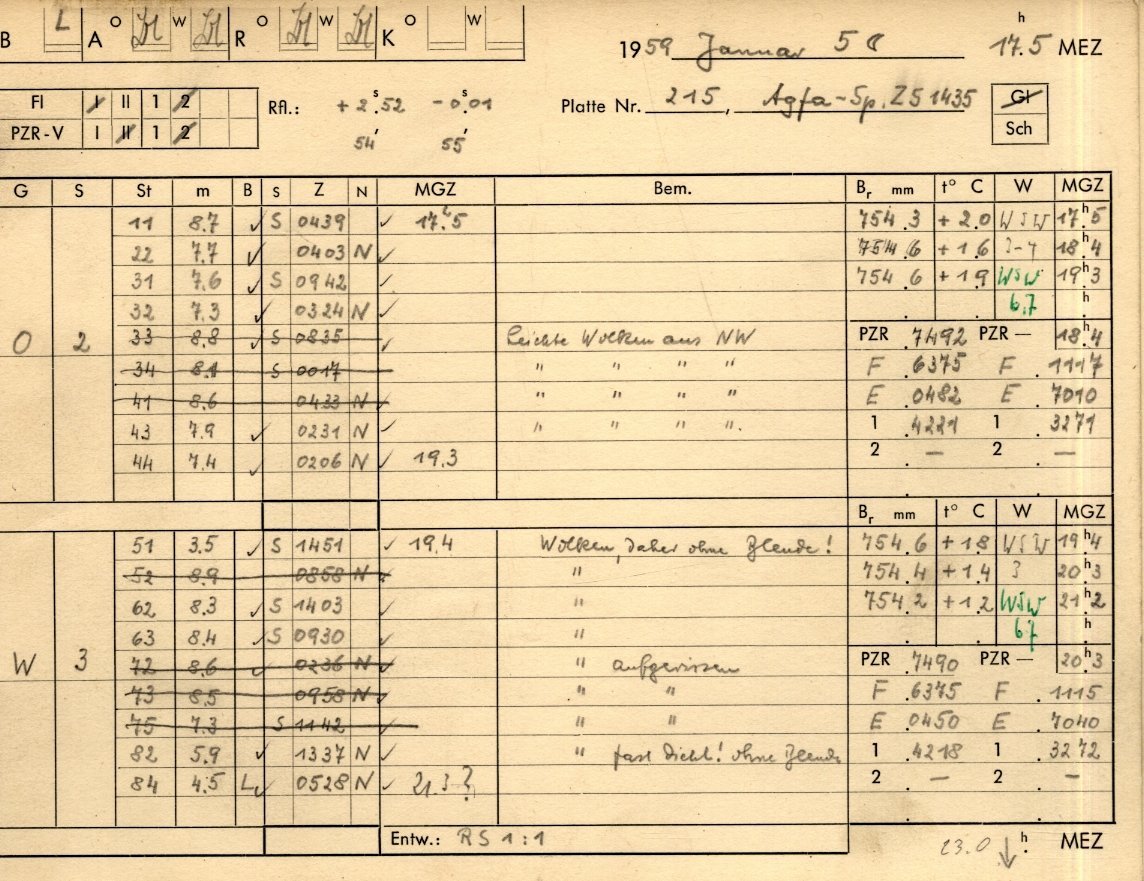 B L A O W R O W K O W
1959 Januar 5 17.5 h MEZ
FI I II 1 2
PZR-V I II 1 2
Rfl.: + 2.52 s - 0.01 s
54' 55'
Platte Nr. 215, Agfa-Sp. ZS 1435
Gl
Sch
G S St m B S Z N MGZ Bem. Br mm t° C W MGZ
11 8.7 ✓ S 0439 ✓ 17.5 754.3 +2.0 WSW 17.5 h
22 7.7 ✓ 0403 N ✓ 754.6 +1.6 3-4 18.4
31 7.6 ✓ S 0942 ✓ 754.6 +1.9 WSW 19.3
32 7.3 ✓ 0324 N ✓ 6.7 h
O 2 33 8.8 ✓ S 0835 ✓ Leichte Wolken aus NW PZR .7492 PZR — 18.4 h
34 8.1 S 0017 " " " " F .6375 F .1117
41 8.6 0433 N ✓ " " " " E .0482 E .7010
43 7.9 ✓ 0231 N ✓ " " " ". 1 .4221 1 .3271
44 7.4 ✓ 0206 N ✓ 19.3 2 . — 2 . —
Br mm t° C W MGZ
51 3.5 ✓ S 1451 ✓ 19.4 Wolken, daher ohne Blende! 754.6 +1.8 WSW 19.4 h
52 8.9 0858 N ✓ " 754.4 +1.4 3 20.3
62 8.3 ✓ S 1403 ✓ " 754.2 +1.2 WSW 21.2 h
63 8.4 ✓ S 0930 ✓ " 67 h
W 3 72 8.6 ✓ 0236 N ✓ " aufgerissen PZR .7490 PZR — 20.3 h
73 8.5 0958 N ✓ " " F .6375 F .1115
75 7.3 S 1142 ✓ " " E .0450 E .7040
82 5.9 ✓ 1337 N ✓ " fast dicht! ohne Blende 1 .4218 1 .3272
84 4.5 L ✓ 0528 N ✓ 21.3? 2 . — 2 . —
Entw.: RS 1:1 23.0 ↓ h MEZ